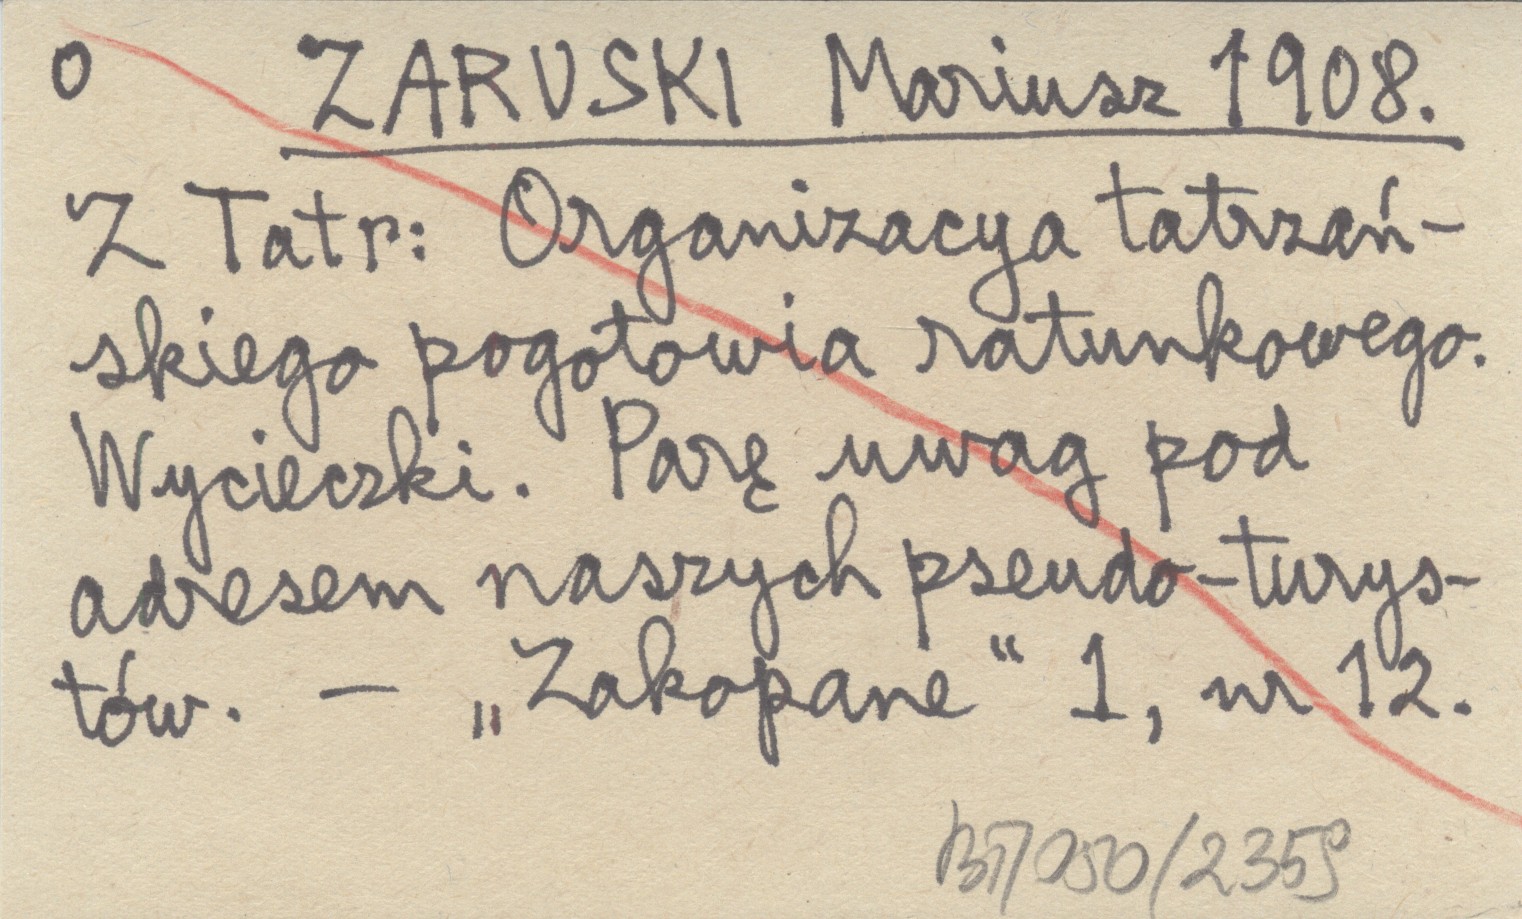 o ZARUSKI Mariusz 1908.
Z Tatr: Organizacya tatrzań-
skiego pogotowia ratunkowego.
Wycieczki. Parę uwag pod
adresem naszych pseudo-turys-
tów. — „Zakopane“ 1, nr 12.
050/2359